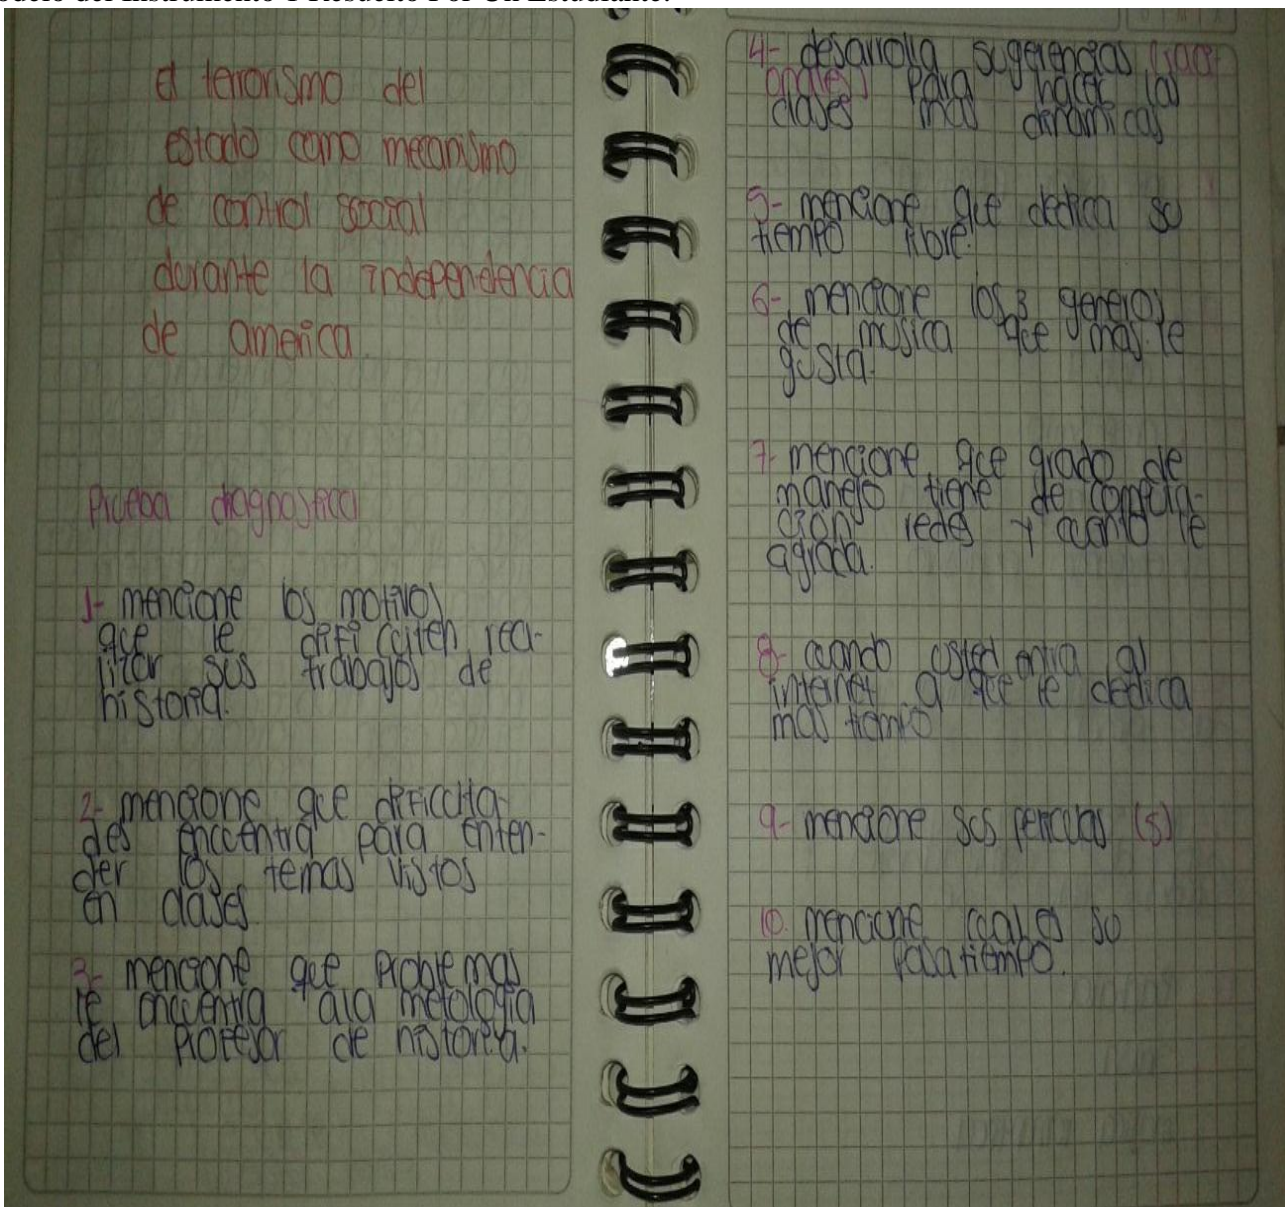 El terrorismo del
estado como mecanismo
de control social
durante la independencia
de america.
Prueba diagnostica
1- mencione los motivos
que le dificulten rea-
lizar sus trabajos de
historia.
2- mencione que dificulta-
des encuentra para enten-
der los temas vistos
en clases
3- mencione que problemas
le encuentra ala metologia
del profesor de historia.
4- desarrolla sugerencias
para hacer las
clases mas dinamicas
5- mencione que dedica su
tiempo libre.
6- mencione los 3 generos
de musica que mas le
gusta.
7- mencione que grado de
manejo tiene de computa-
cion redes y cuanto le
agrada.
8- cuando usted entra al
internet a que le dedica
mas tiempo
9- mencione sus peliculas (5)
10. mencione cual es su
mejor pasatiempo.